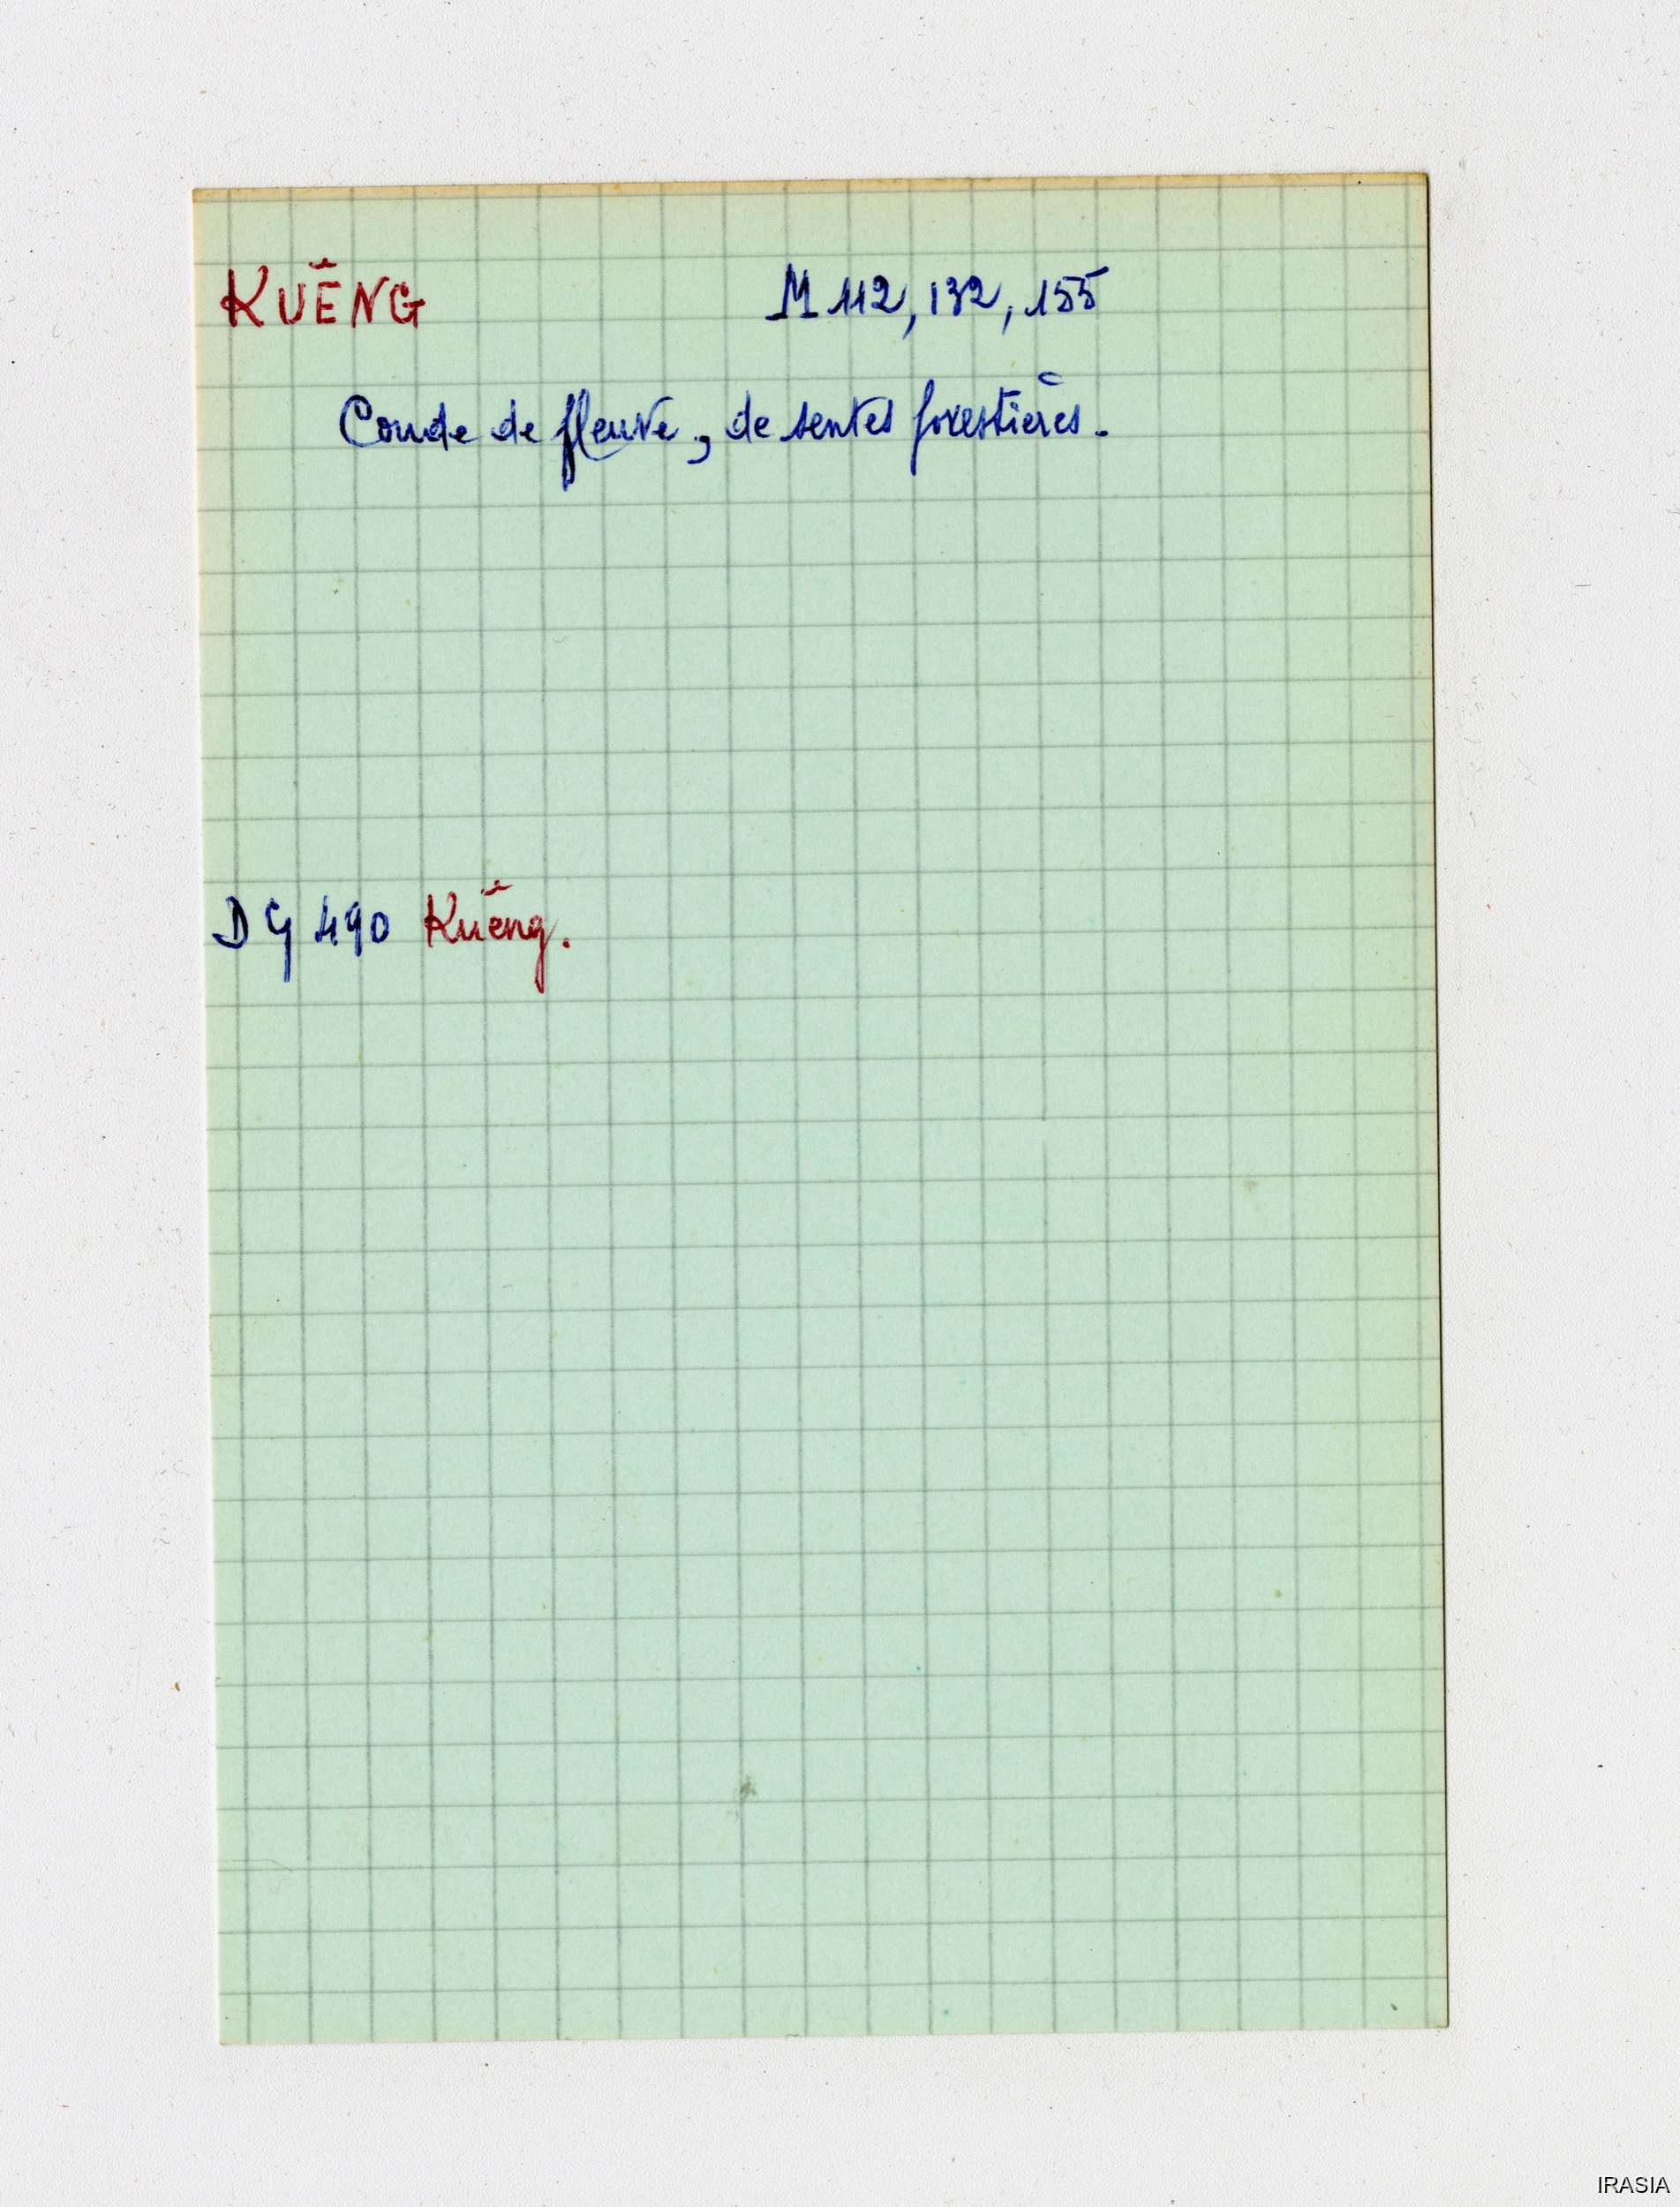 KUĒNG M 112, 132, 155
Coude de fleuve, de sentes forestières.
DG 490 Kuēng.
IRASIA